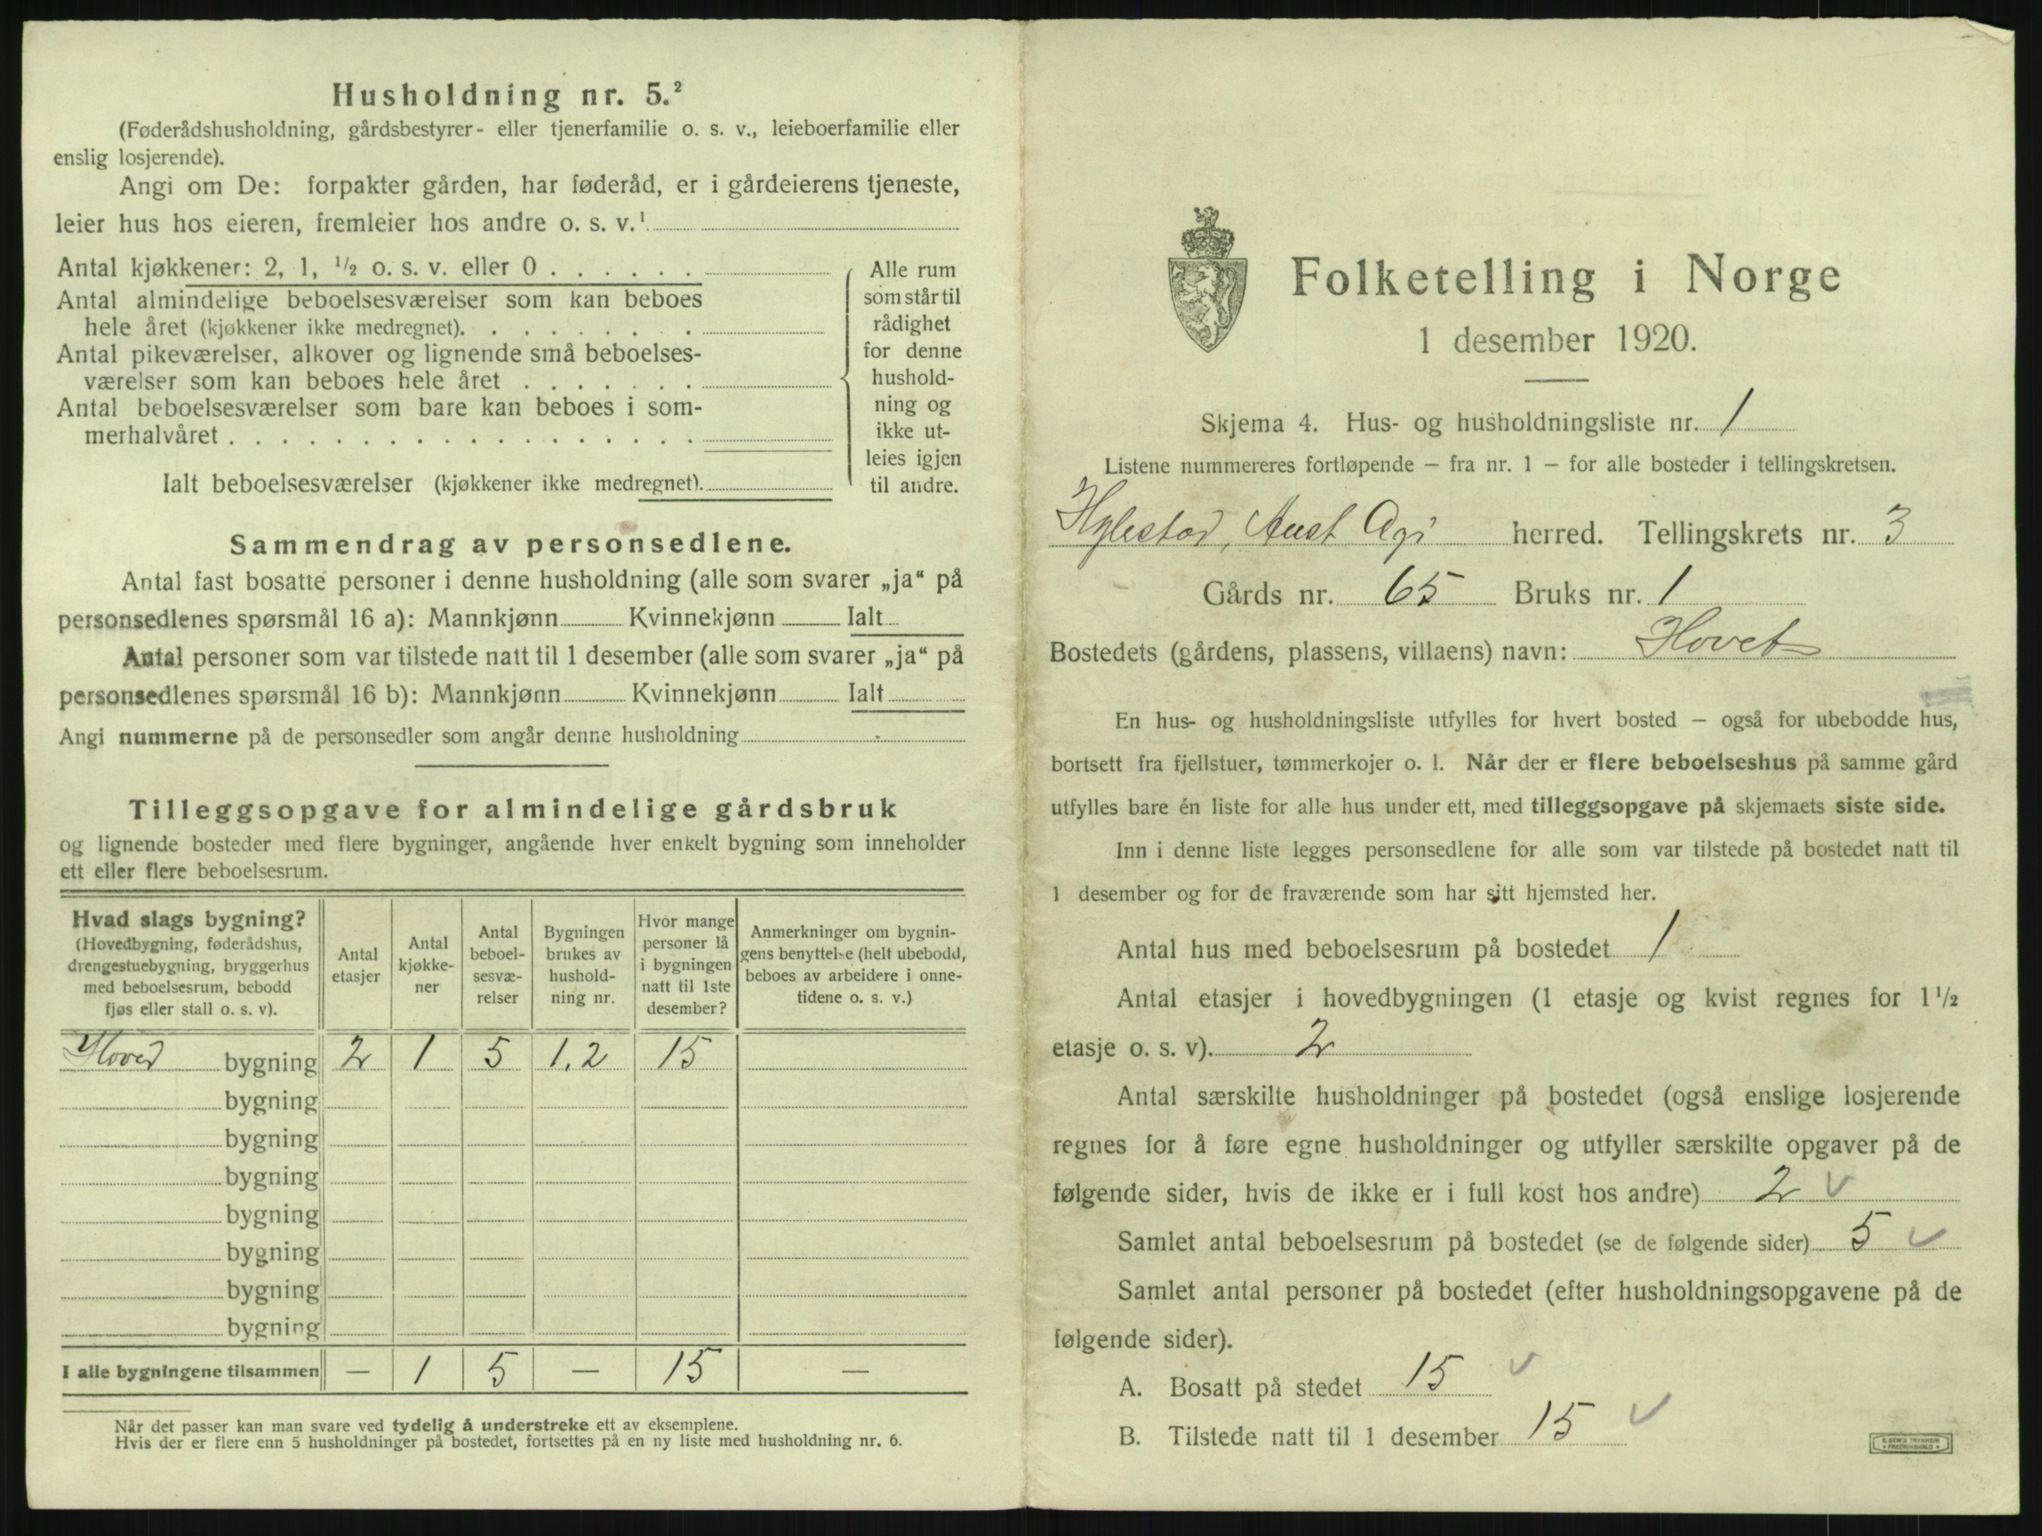 Husholdning nr. 5.²
(Føderådshusholdning, gårdsbestyrer- eller tjenerfamilie o. s. v., leieboerfamilie eller
enslig losjerende).
Angi om De: forpakter gården, har føderåd, er i gårdeierens tjeneste,
leier hus hos eieren, fremleier hos andre o. s. v.¹
Antal kjøkkener: 2, 1, ½ o. s. v. eller 0 . . . . . .
Antal almindelige beboelsesværelser som kan beboes
hele året (kjøkkener ikke medregnet). . . . . . . . .
Antal pikeværelser, alkover og lignende små beboelses-
værelser som kan beboes hele året . . . . . . .
Antal beboelsesværelser som bare kan beboes i som-
merhalvåret . . . . . . . . . . . . . . . . . .
Ialt beboelsesværelser (kjøkkener ikke medregnet).
Alle rum
som står til
rådighet
for denne
hushold-
ning og
ikke ut-
leies igjen
til andre.
Sammendrag av personsedlene.
Antal fast bosatte personer i denne husholdning (alle som svarer „ja“ på
personsedlenes spørsmål 16 a): Mannkjønn Kvinnekjønn Ialt
Antal personer som var tilstede natt til 1 desember (alle som svarer „ja“ på
personsedlenes spørsmål 16 b): Mannkjønn Kvinnekjønn Ialt
Angi nummerne på de personsedler som angår denne husholdning
Tilleggsopgave for almindelige gårdsbruk
og lignende bosteder med flere bygninger, angående hver enkelt bygning som inneholder
ett eller flere beboelsesrum.
Hvad slags bygning?
(Hovedbygning, føderådshus,
drengestuebygning, bryggerhus
med beboelsesrum, bebodd
fjøs eller stall o. s. v).
Antal
etasjer
Antal
kjøkke-
ner
Antal
beboel-
sesvæ-
relser
Bygningen
brukes av
hushold-
ning nr.
Hvor mange
personer lå
i bygningen
natt til 1ste
desember?
Anmerkninger om bygnin-
gens benyttelse (helt ubebodd,
beboes av arbeidere i onne-
tidene o. s. v.)
Hoved bygning 2 1 5 1,2 15
bygning
bygning
bygning
bygning
bygning
bygning
bygning
I alle bygningene tilsammen — 1 5 — 15 —
Når det passer kan man svare ved tydelig å understreke ett av eksemplene.
Hvis der er flere enn 5 husholdninger på bostedet, fortsettes på en ny liste med husholdning nr. 6.
Folketelling i Norge
1 desember 1920.
Skjema 4. Hus- og husholdningsliste nr. 1
Listene nummereres fortløpende – fra nr. 1 – for alle bosteder i tellingskretsen.
Hylestad, Aust Agd herred. Tellingskrets nr. 3
Gårds nr. 65 Bruks nr. 1
Bostedets (gårdens, plassens, villaens) navn: Hovet
En hus- og husholdningsliste utfylles for hvert bosted – også for ubebodde hus,
bortsett fra fjellstuer, tømmerkojer o. l. Når der er flere beboelseshus på samme gård
utfylles bare én liste for alle hus under ett, med tilleggsopgave på skjemaets siste side.
Inn i denne liste legges personsedlene for alle som var tilstede på bostedet natt til
1 desember og for de fraværende som har sitt hjemsted her.
Antal hus med beboelsesrum på bostedet 1
Antal etasjer i hovedbygningen (1 etasje og kvist regnes for 1½
etasje o. s. v). 2
Antal særskilte husholdninger på bostedet (også enslige losjerende
regnes for å føre egne husholdninger og utfyller særskilte opgaver på de
følgende sider, hvis de ikke er i full kost hos andre) 2 ✓
Samlet antal beboelsesrum på bostedet (se de følgende sider) 5 ✓
Samlet antal personer på bostedet (efter husholdningsopgavene på de
følgende sider).
A. Bosatt på stedet 15 ✓
B. Tilstede natt til 1 desember 15 ✓